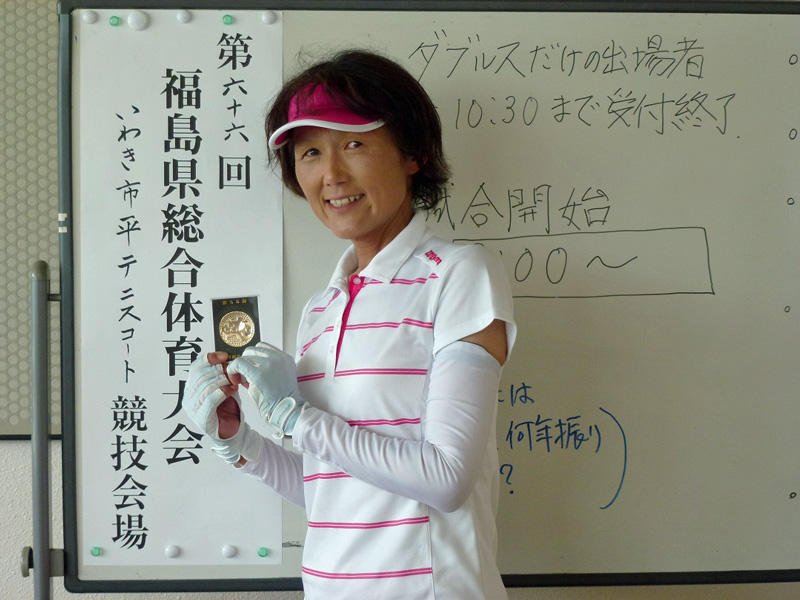 第六十六回
福島県総合体育大会
いわき市平テニスコート 競技会場
ダブルスだけの出場者
10:30まで受付終了
試合開始
:00〜
は
何年振り
?